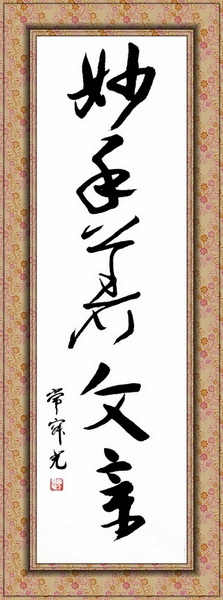 妙手著文章
常寂光